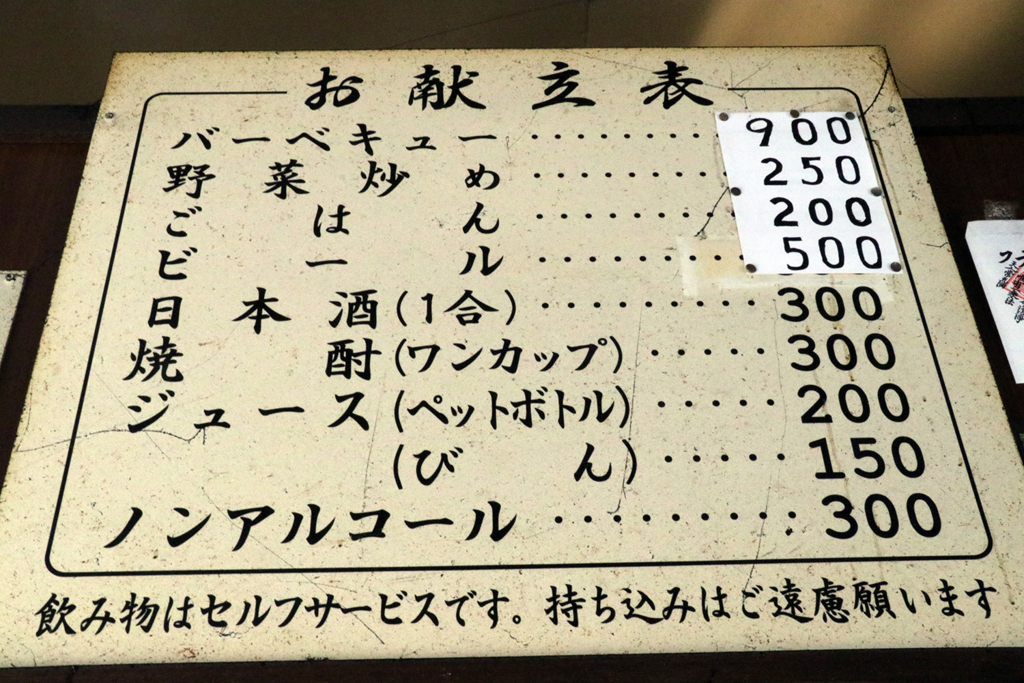 お献立表
バーベキュー………900
野菜炒め………250
ごはん………200
ビール………500
日本酒(1合)………300
焼酎(ワンカップ)……300
ジュース(ペットボトル)……200
(びん)……150
ノンアルコール………300
飲み物はセルフサービスです。持ち込みはご遠慮願います